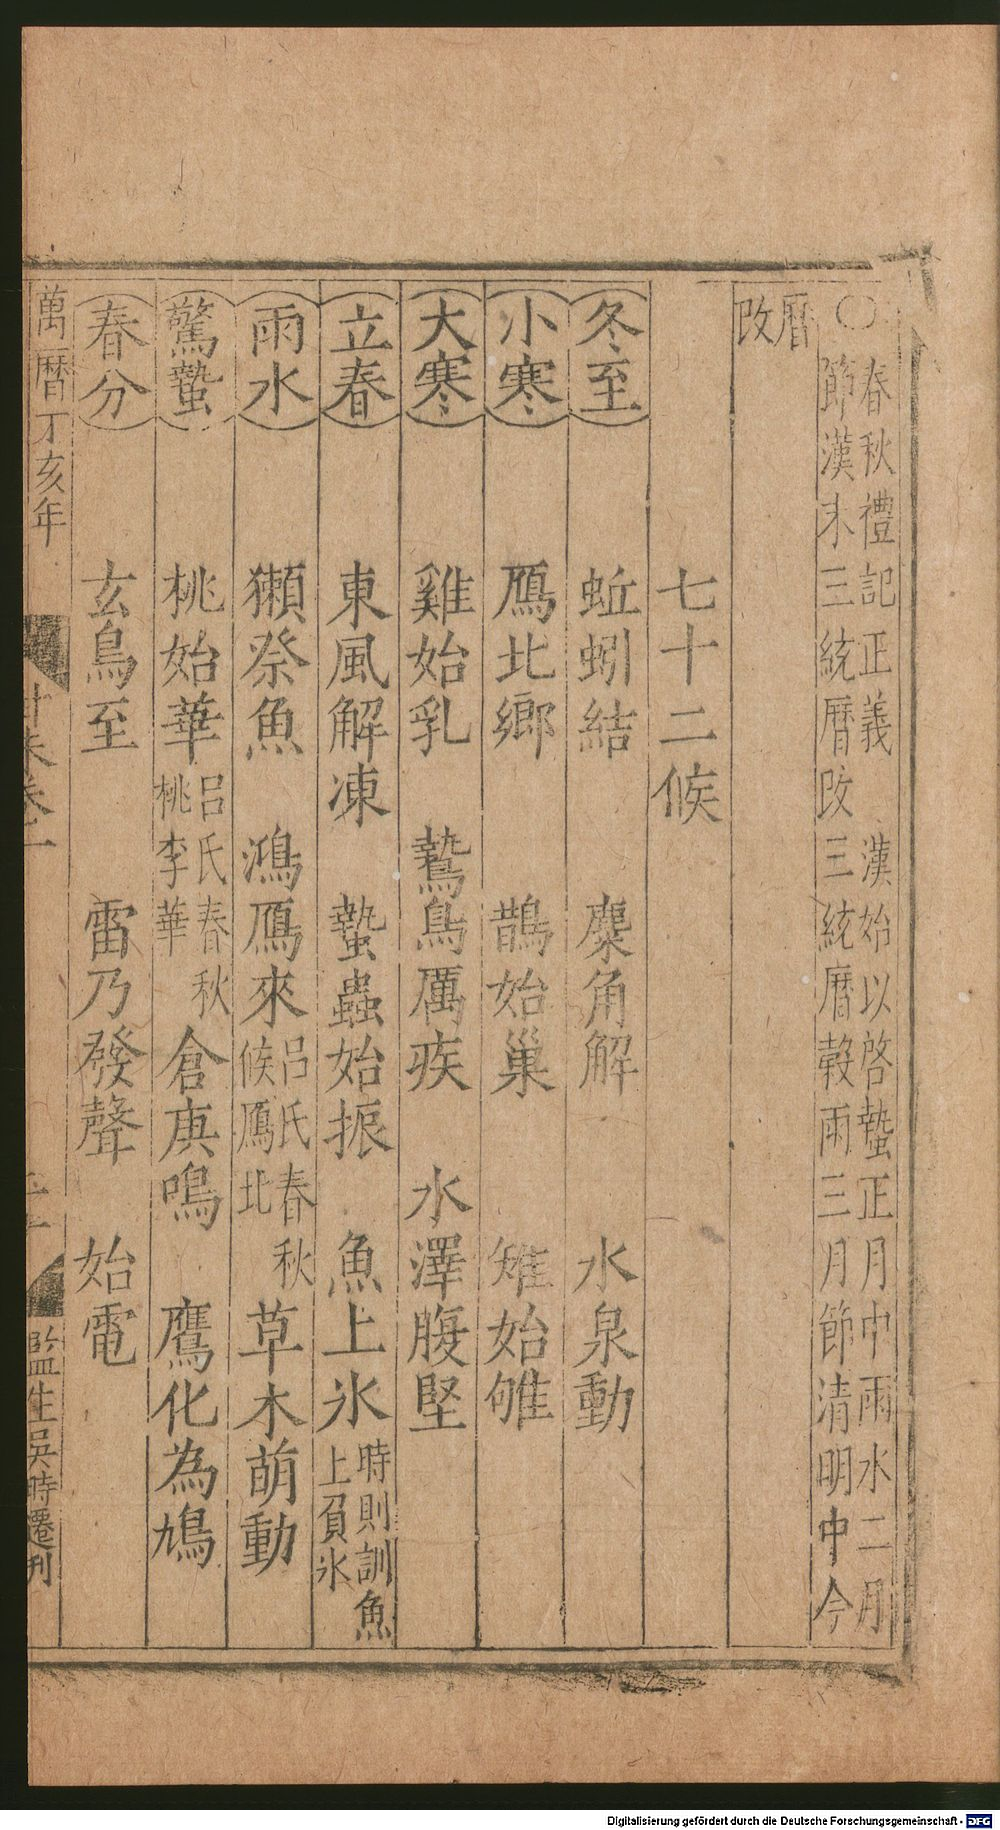 ○春秋禮記正義　漢始以啓蟄正月中雨水二月
節漢末三統曆改三統曆穀雨三月節清明中今
曆
改
七十二候
冬至　蚯蚓結　麋角解　水泉動
小寒　鴈北鄉　鵲始巢　雉始雊
大寒　雞始乳　鷙鳥厲疾　水澤腹堅
立春　東風解凍　蟄蟲始振　魚上氷時則訓魚上負氷
雨水　獺祭魚　鴻鴈來呂氏春秋候鴈北草木萌動
驚蟄　桃始華呂氏春秋桃李華倉庚鳴　鷹化為鳩
春分　玄鳥至　雷乃發聲　始電
萬曆丁亥年
監生吳時遷刋
Digitalisierung gefördert durch die Deutsche Forschungsgemeinschaft - DFG